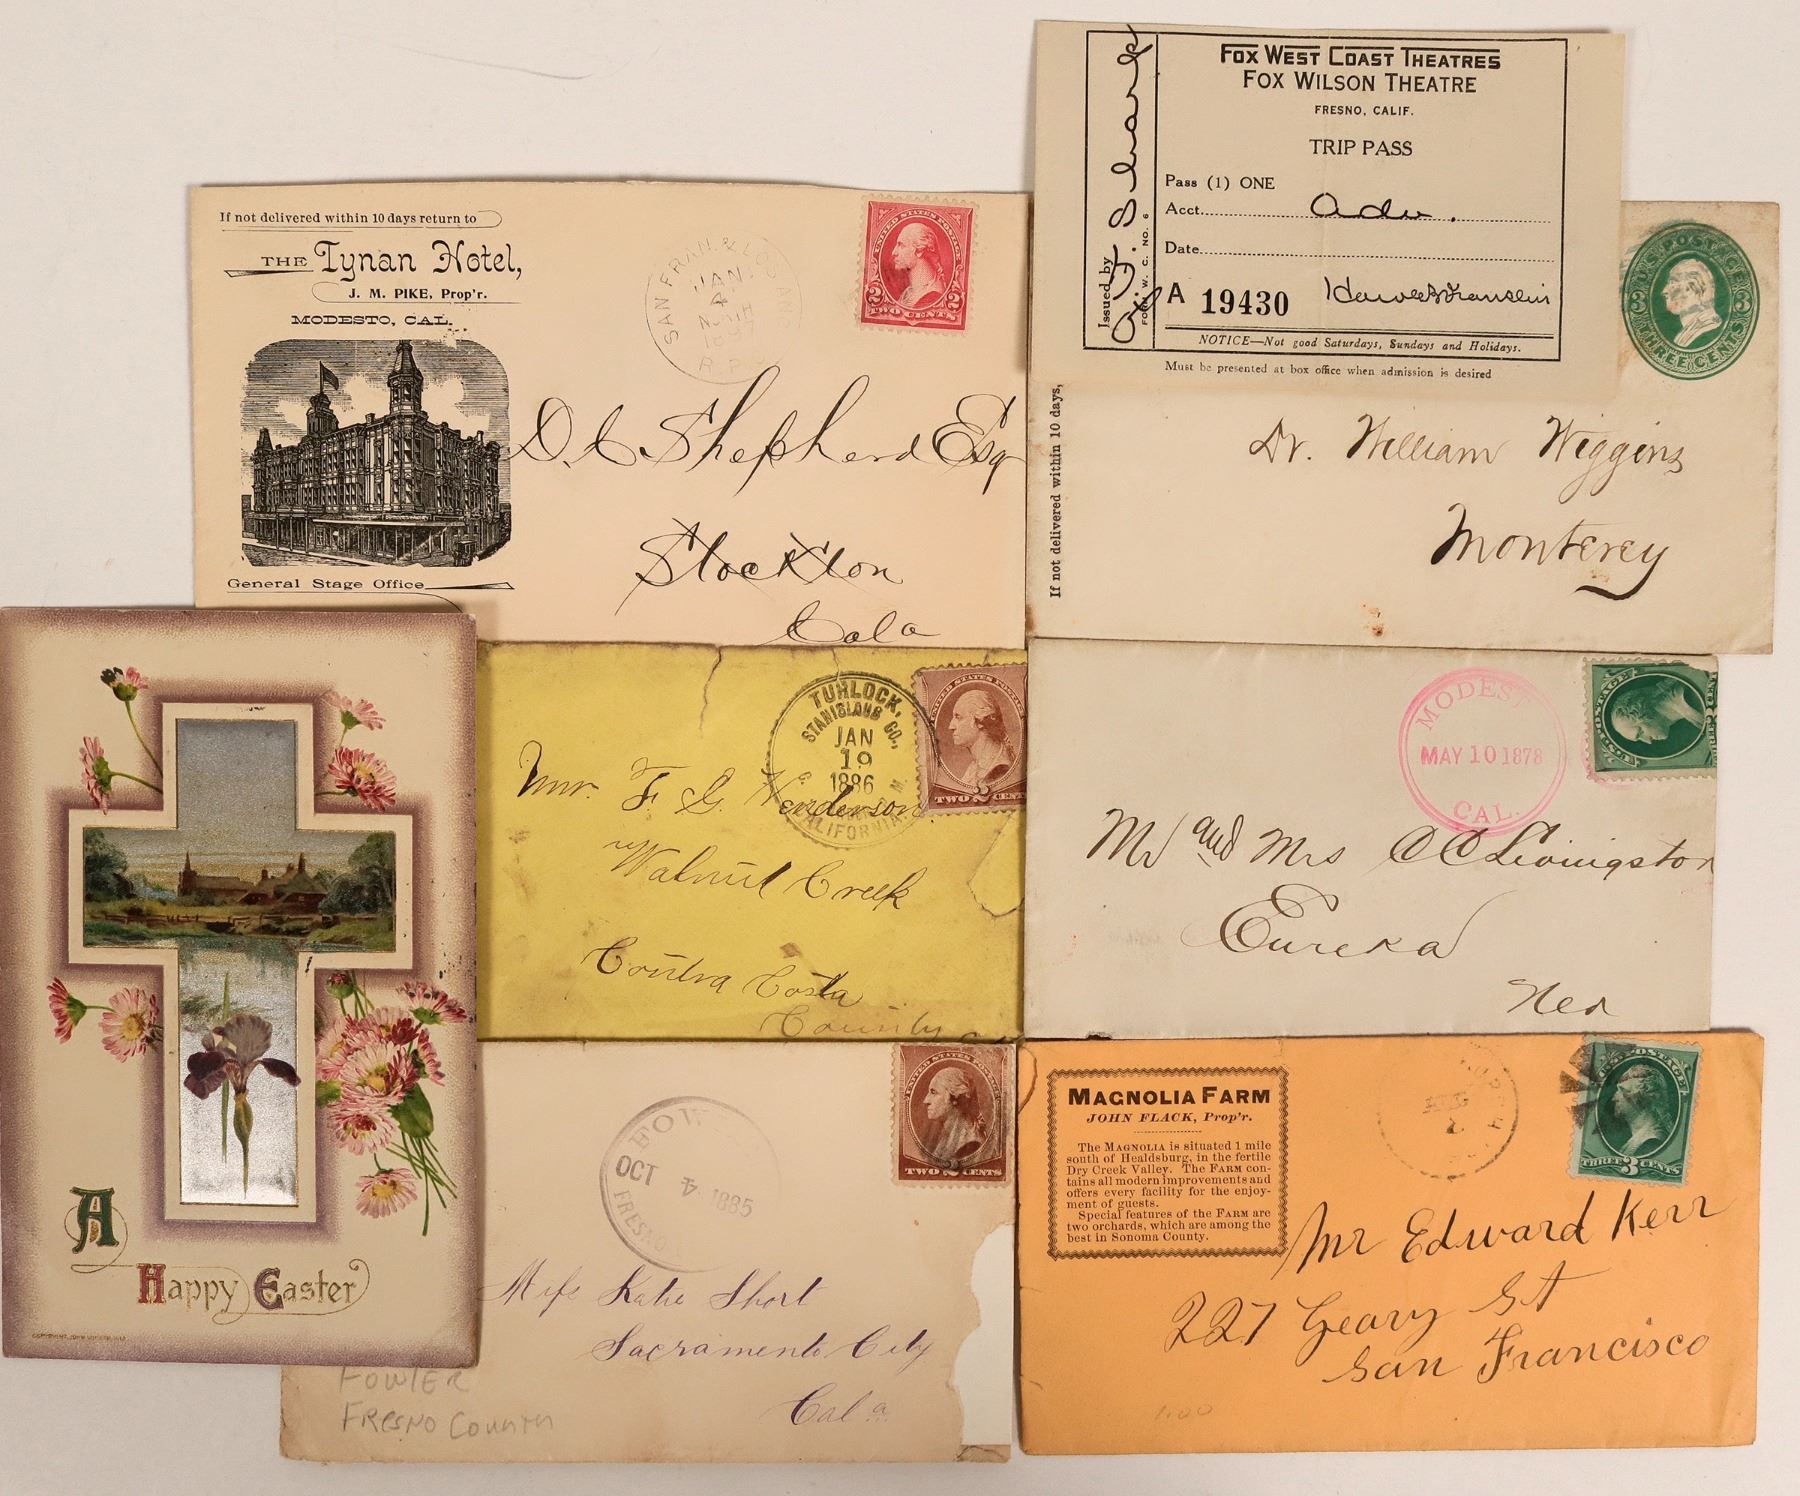 If not delivered within 10 days return to
THE Tynan Hotel,
J. M. PIKE, Prop'r.
MODESTO, CAL.
General Stage Office
SAN FRAN. &
JAN
4
R.P.
UNITED STATES POSTAGE
2 2
TWO CENTS
D. C. Shepherd Esq
Stockton
Cala
FOX WEST COAST THEATRES
FOX WILSON THEATRE
FRESNO, CALIF.
TRIP PASS
Pass (1) ONE
Acct. Adv.
Date
A 19430
NOTICE—Not good Saturdays, Sundays and Holidays.
Must be presented at box office when admission is desired
Issued by
FORM W. C. NO. 6
U.S. POSTAGE
3 3
THREE CENTS
If not delivered within 10 days,
Dr. William Wiggins
Monterey
TURLOCK,
STANISLAUS CO.,
JAN
19
1886
CALIFORNIA.
UNITED STATES POSTAGE
TWO 2 CENTS
Mr. F. G. Henderson
Walnut Creek
Contra Costa
County
MODESTO
MAY 10 1878
CAL.
Mr and Mrs C C Livingston
Eureka
Nev
A
Happy Easter
FOW
OCT 1885
FRESNO
UNITED STATES POSTAGE
TWO 2 CENTS
Miss Katie Short
Sacramento City
Cala
FOWLER
FRESNO COUNTY
MAGNOLIA FARM
JOHN FLACK, Prop'r.
The MAGNOLIA is situated 1 mile
south of Healdsburg, in the fertile
Dry Creek Valley. The FARM con-
tains all modern improvements and
offers every facility for the enjoy-
ment of guests.
Special features of the FARM are
two orchards, which are among the
best in Sonoma County.
AUG
2
U.S. POSTAGE
THREE 3 CENTS
Mr Edward Kerr
227 Geary St
San Francisco
1.00